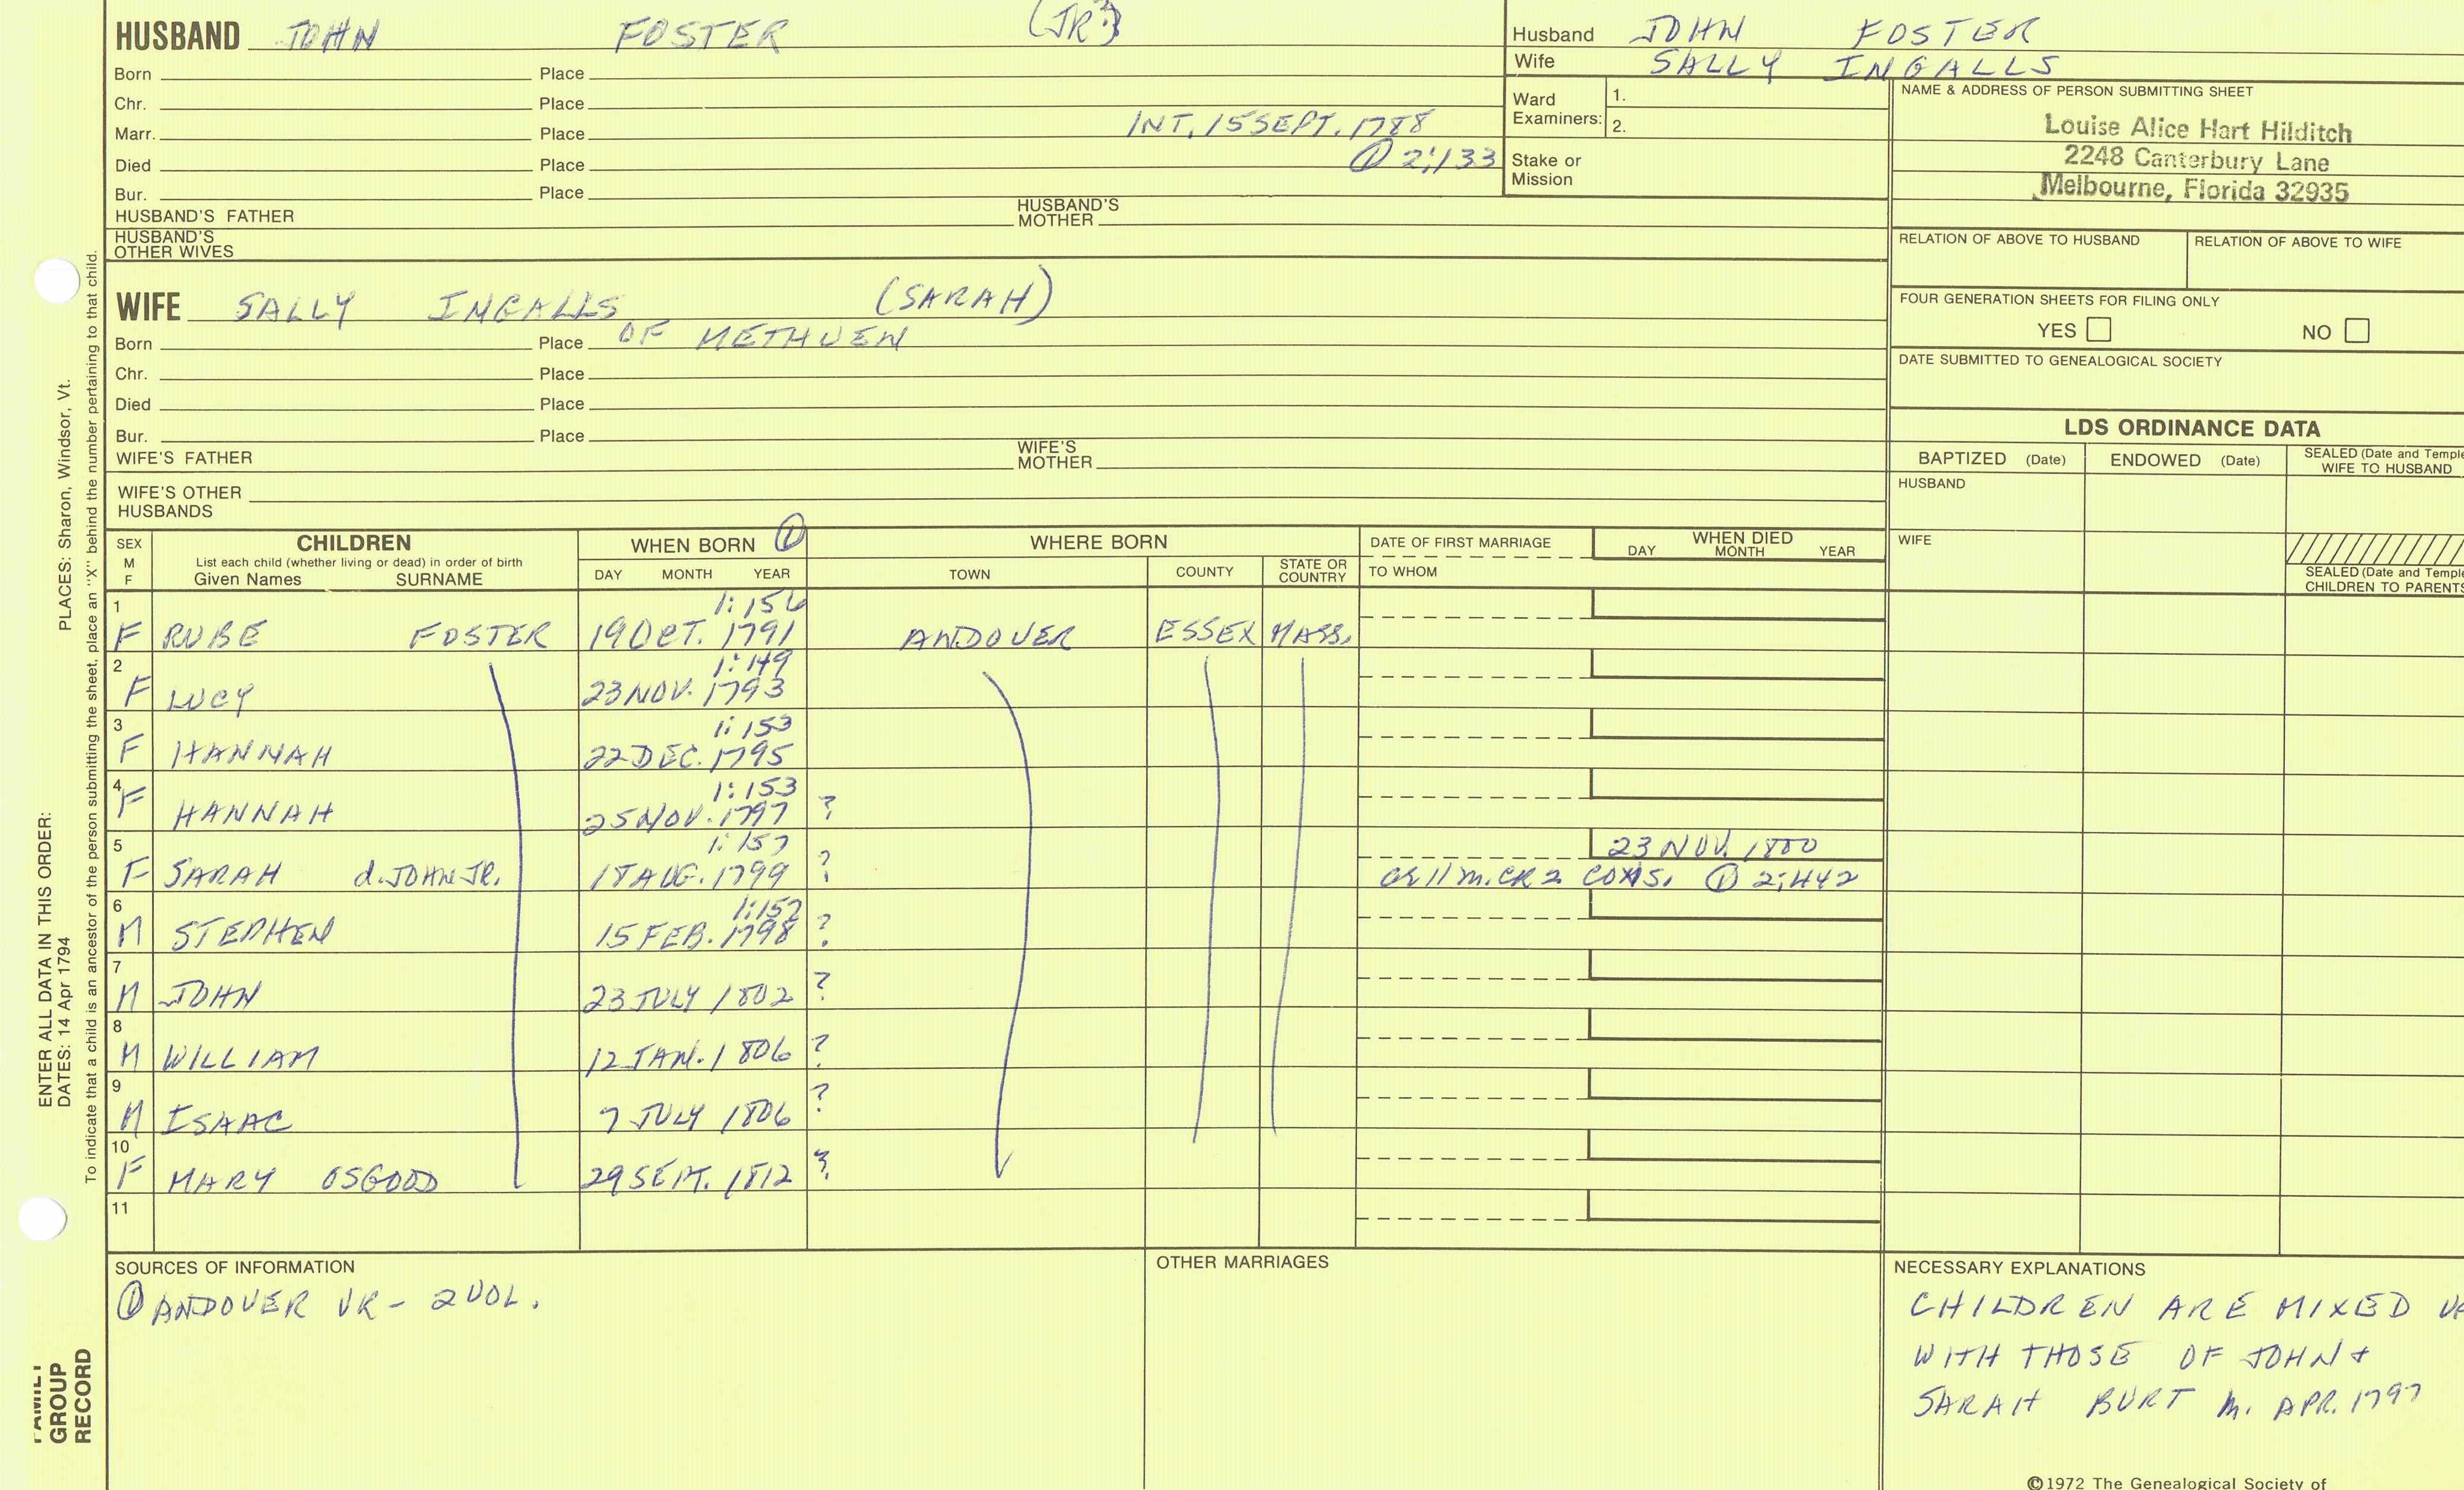 HUSBAND JOHN FOSTER (JR?)
Born Place
Chr. Place
Marr. Place INT. 15 SEPT. 1788
Died Place ① 2:133
Bur. Place
HUSBAND'S FATHER HUSBAND'S MOTHER
HUSBAND'S OTHER WIVES
WIFE SALLY INGALLS (SARAH)
Born Place OF METHUEN
Chr. Place
Died Place
Bur. Place
WIFE'S FATHER WIFE'S MOTHER
WIFE'S OTHER HUSBANDS
Husband JOHN FOSTER
Wife SALLY INGALLS
Ward Examiners: 1.
2.
Stake or Mission
NAME & ADDRESS OF PERSON SUBMITTING SHEET
Louise Alice Hart Hilditch
2248 Canterbury Lane
Melbourne, Florida 32935
RELATION OF ABOVE TO HUSBAND RELATION OF ABOVE TO WIFE
FOUR GENERATION SHEETS FOR FILING ONLY
YES NO
DATE SUBMITTED TO GENEALOGICAL SOCIETY
LDS ORDINANCE DATA
BAPTIZED (Date) ENDOWED (Date) SEALED (Date and Temple
WIFE TO HUSBAND
HUSBAND
WIFE
SEALED (Date and Temple
CHILDREN TO PARENTS
SEX M F CHILDREN WHEN BORN ① WHERE BORN DATE OF FIRST MARRIAGE WHEN DIED
List each child (whether living or dead) in order of birth
Given Names SURNAME DAY MONTH YEAR TOWN COUNTY STATE OR COUNTRY TO WHOM DAY MONTH YEAR
1 1:156
F RUBE FOSTER 19 OCT. 1791 ANDOVER ESSEX MASS.
2 1:149
F LUCY 23 NOV. 1793
3 1:153
F HANNAH 22 DEC. 1795
4 1:153
F HANNAH 25 NOV. 1797 ?
5 1:157 23 NOV. 1800
F SARAH d. JOHN JR. 18 AUG. 1799 ? CR2 CONS. ① 2:442
6 1:157
M STEPHEN 15 FEB. 1798 ?
7
M JOHN 23 JULY 1802 ?
8
M WILLIAM 12 JAN. 1806 ?
9
M ISAAC 7 JULY 1806 ?
10
F MARY OSGOOD 29 SEPT. 1812 ?
11
SOURCES OF INFORMATION
① ANDOVER VR - 2 VOL.
OTHER MARRIAGES
NECESSARY EXPLANATIONS
CHILDREN ARE MIXED UP
WITH THOSE OF JOHN &
SARAH BURT m. APR. 1797
©1972 The Genealogical Society of
ENTER ALL DATA IN THIS ORDER:
DATES: 14 Apr 1794 PLACES: Sharon, Windsor, Vt.
To indicate that a child is an ancestor of the person submitting the sheet, place an "X" behind the number pertaining to that child.
FAMILY
GROUP
RECORD